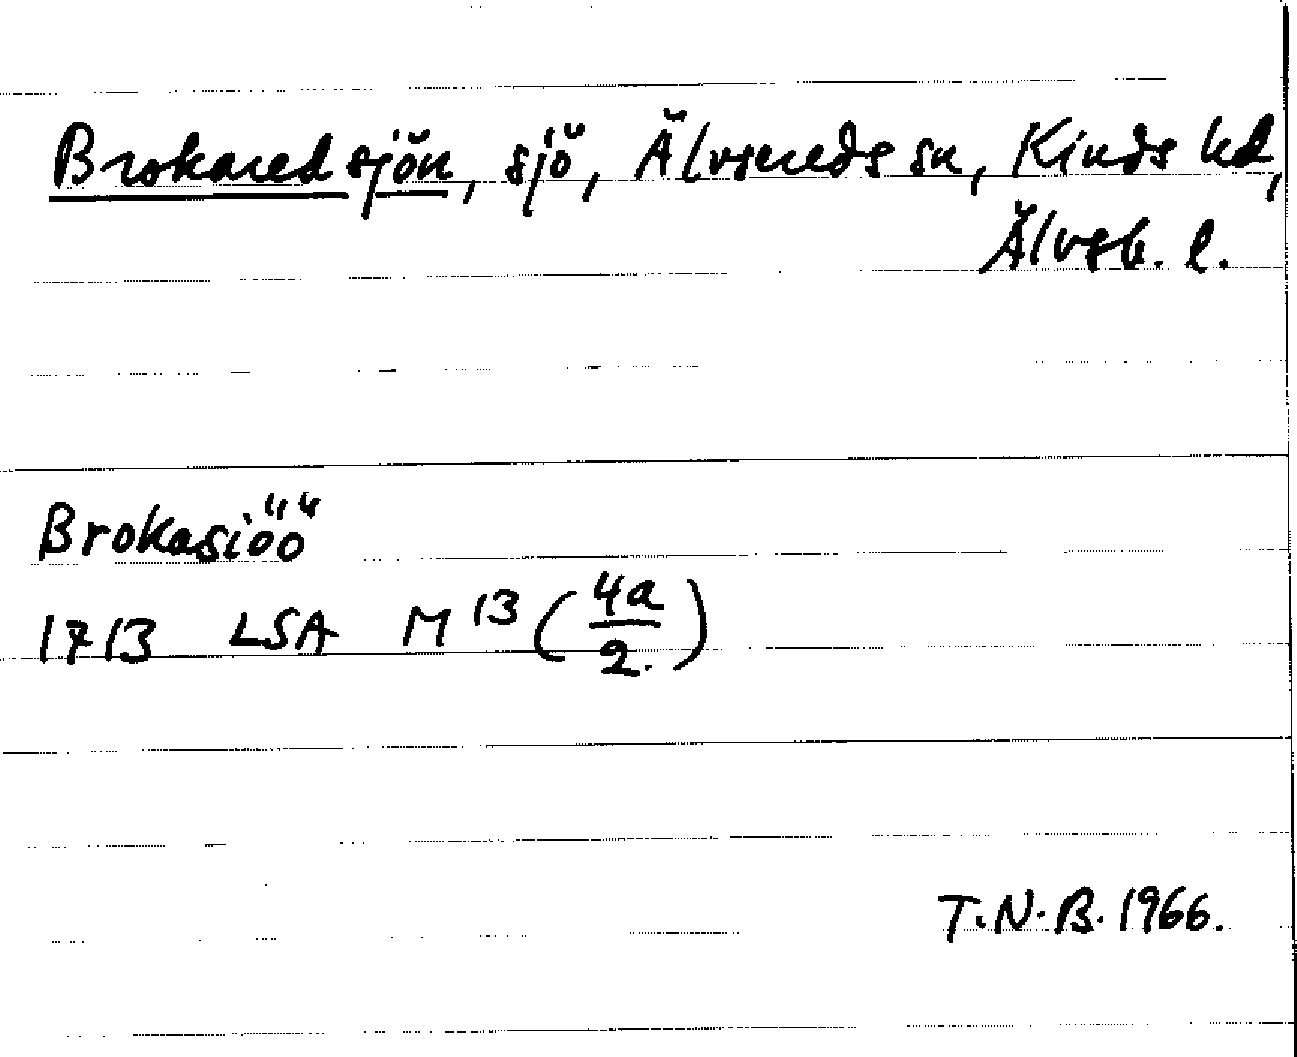 Brokaredsjön, sjö, Älvsereds sn, Kinds hd,
Älvsb. l.
Brokasiöö
1713 LSA M 13 (4a/2.)
T.N.B. 1966.